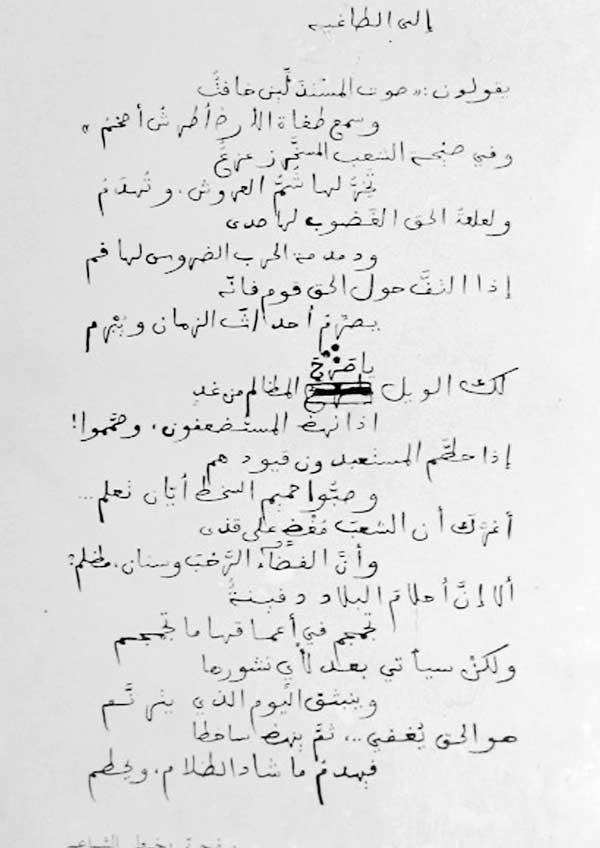 إلى الطاغية
يقولون: «صوت المستذلِّين خافتٌ
وسمع طغاة الأرض أطرشُ أضخمُ»
وفي صيحة الشعب المسخَّر زعزعٌ
تَخِرُّ لها شُمُّ العروش، وتُهدَمُ
ولعلعةُ الحق الغَضوب لها صدى
ودمدمة الحرب الضروس لها فم
إذا التفَّ حول الحق قوم فانّه
يصرِّمُ أحداثَ الزمان ويُبْرِم
يا صَرْحَ
لك الويل المظالم من غدٍ
اذا نهض المستضعفون، وصمّموا!
إذا حطَّم المستعبدون قيودهم
وصبّوا حميم السخط أيّان تعلم...
أغرّك أن الشعب مُغْضٍ على قذى
وأنَّ الفضاءَ الرَّحبَ وسنان، مظلم؟
ألا إنَّ أحلامَ البلاد دفينةٌ
تجمجم في أعماقها ما تجمجم
ولكنْ سيأتي بعد لأيٍ نشورها
وينبثق اليوم الذي يترنَّم
هو الحق يُغفي... ثمَّ ينهض ساخطا
فيهدمُ ما شاد الظلام، ويحطم